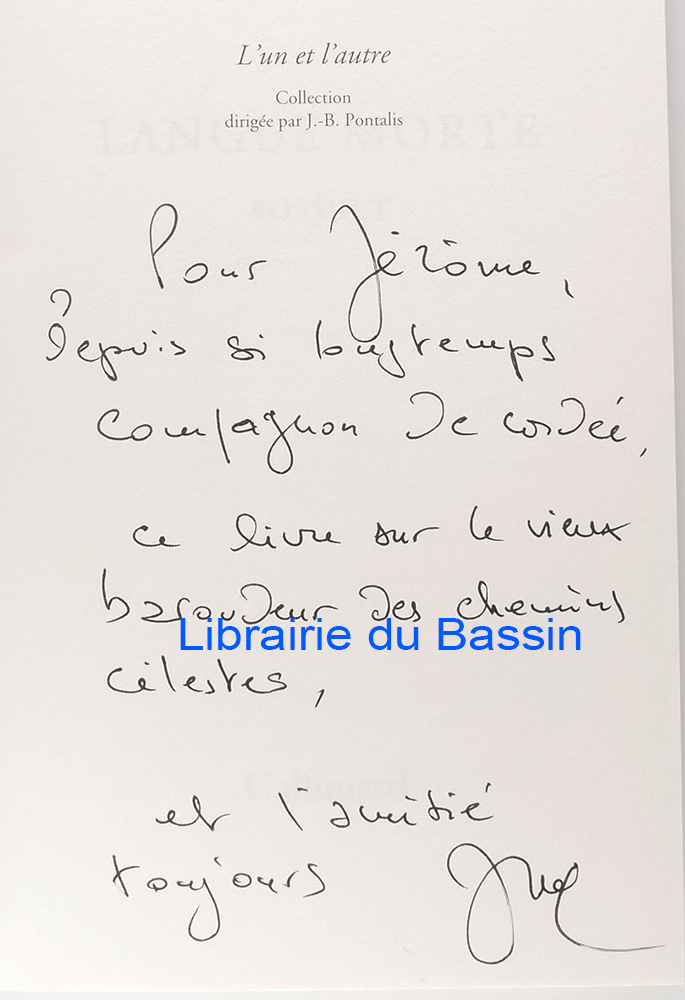 L'un et l'autre
Collection
dirigée par J.-B. Pontalis
LANGUE MORTE
BOSSUET
Pour Jérôme,
Depuis si longtemps
compagnon de cordée,
ce livre sur le vieux
baroudeur des chemins
Librairie du Bassin
célestes,
Gallimard
et l'amitié
toujours